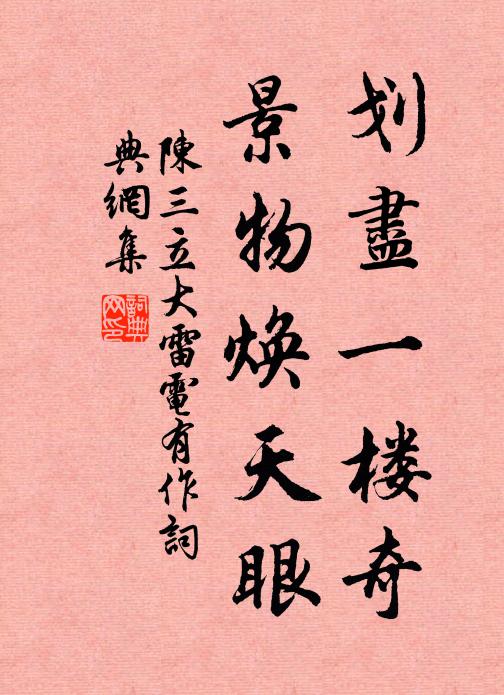 划盡一楼奇
景物煥天眼
陳三立大雷電有作詞
典網集
詞典
网印